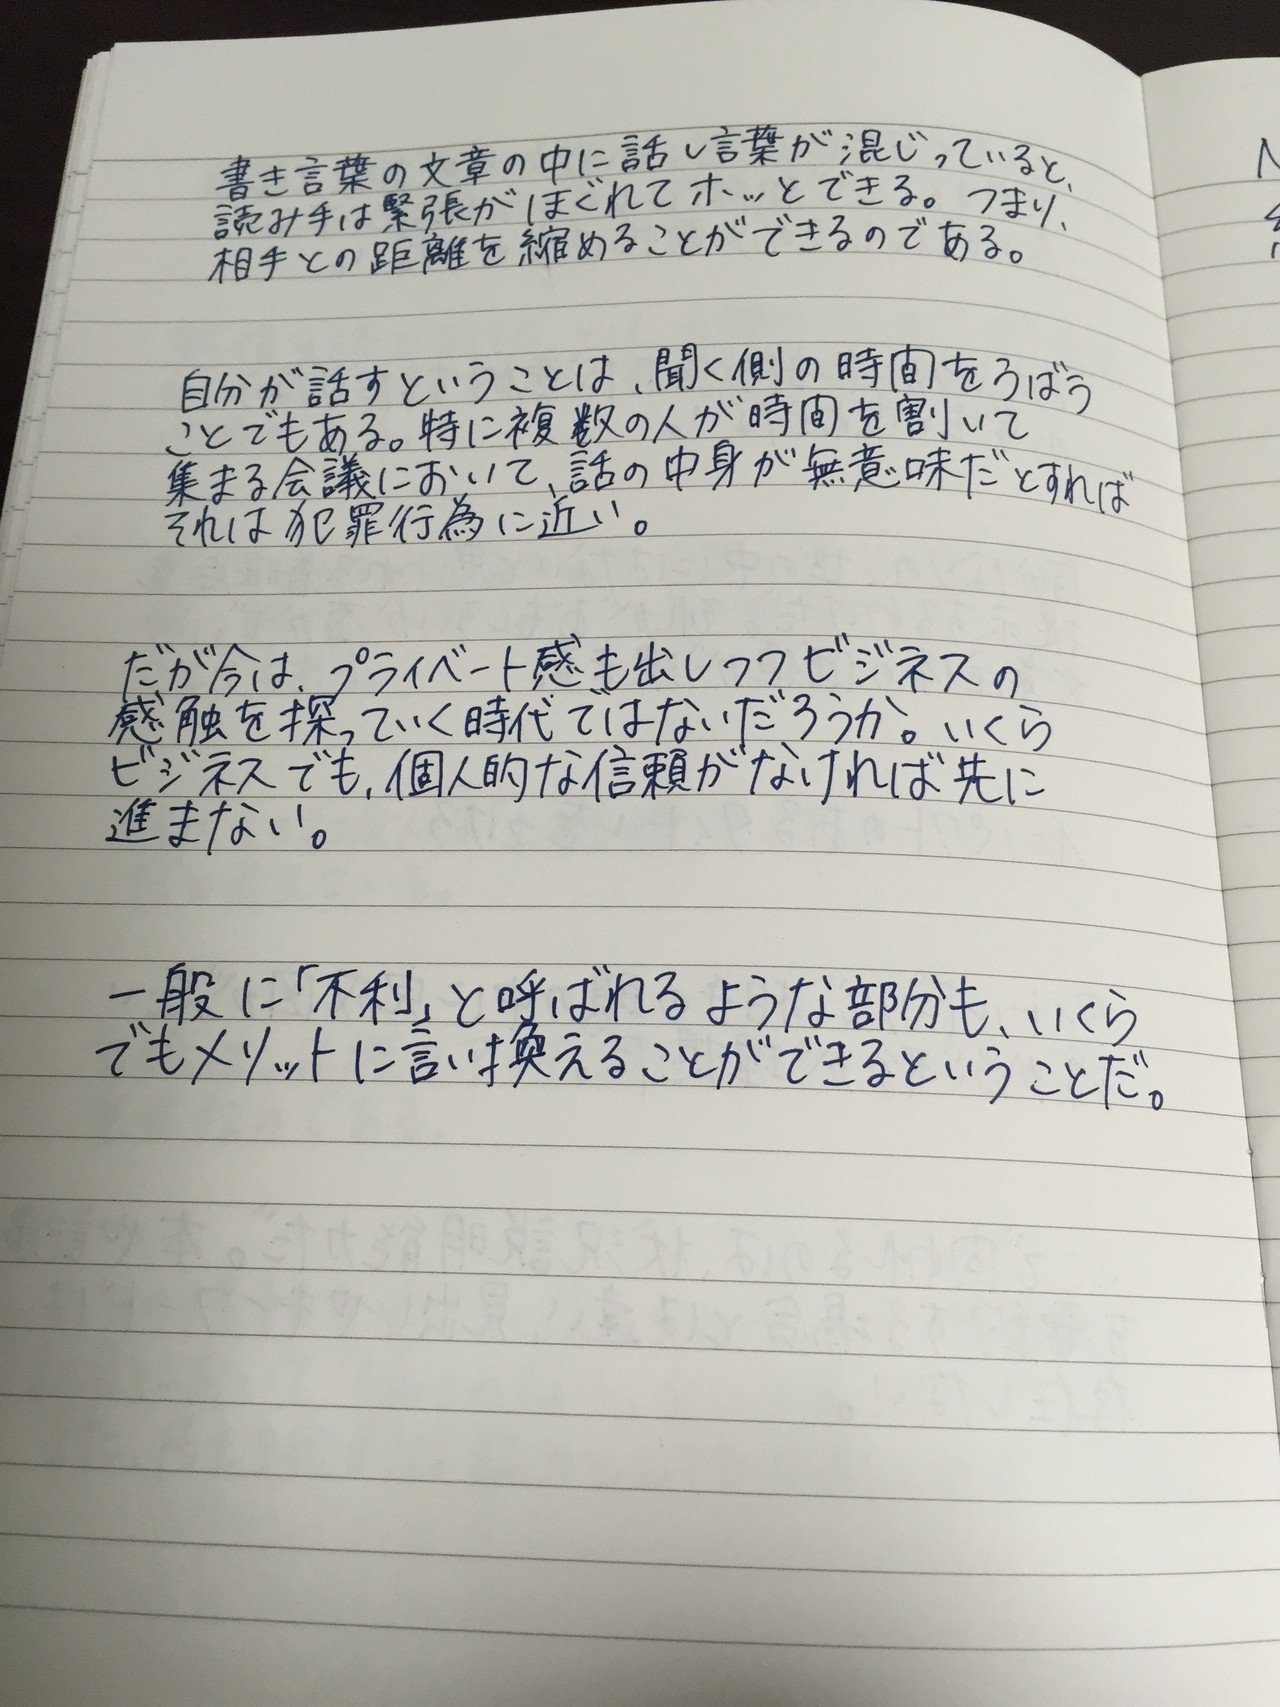 書き言葉の文章の中に話し言葉が混じっていると、
読み手は緊張がほぐれてホッとできる。つまり、
相手との距離を縮めることができるのである。
自分が話すということは、聞く側の時間をうばう
ことでもある。特に複数の人が時間を割いて
集まる会議において、話の中身が無意味だとすれば
それは犯罪行為に近い。
だが今は、プライベート感も出しつつビジネスの
感触を探っていく時代ではないだろうか。いくら
ビジネスでも、個人的な信頼がなければ先に
進まない。
一般に「不利」と呼ばれるような部分も、いくら
でもメリットに言い換えることができるということだ。